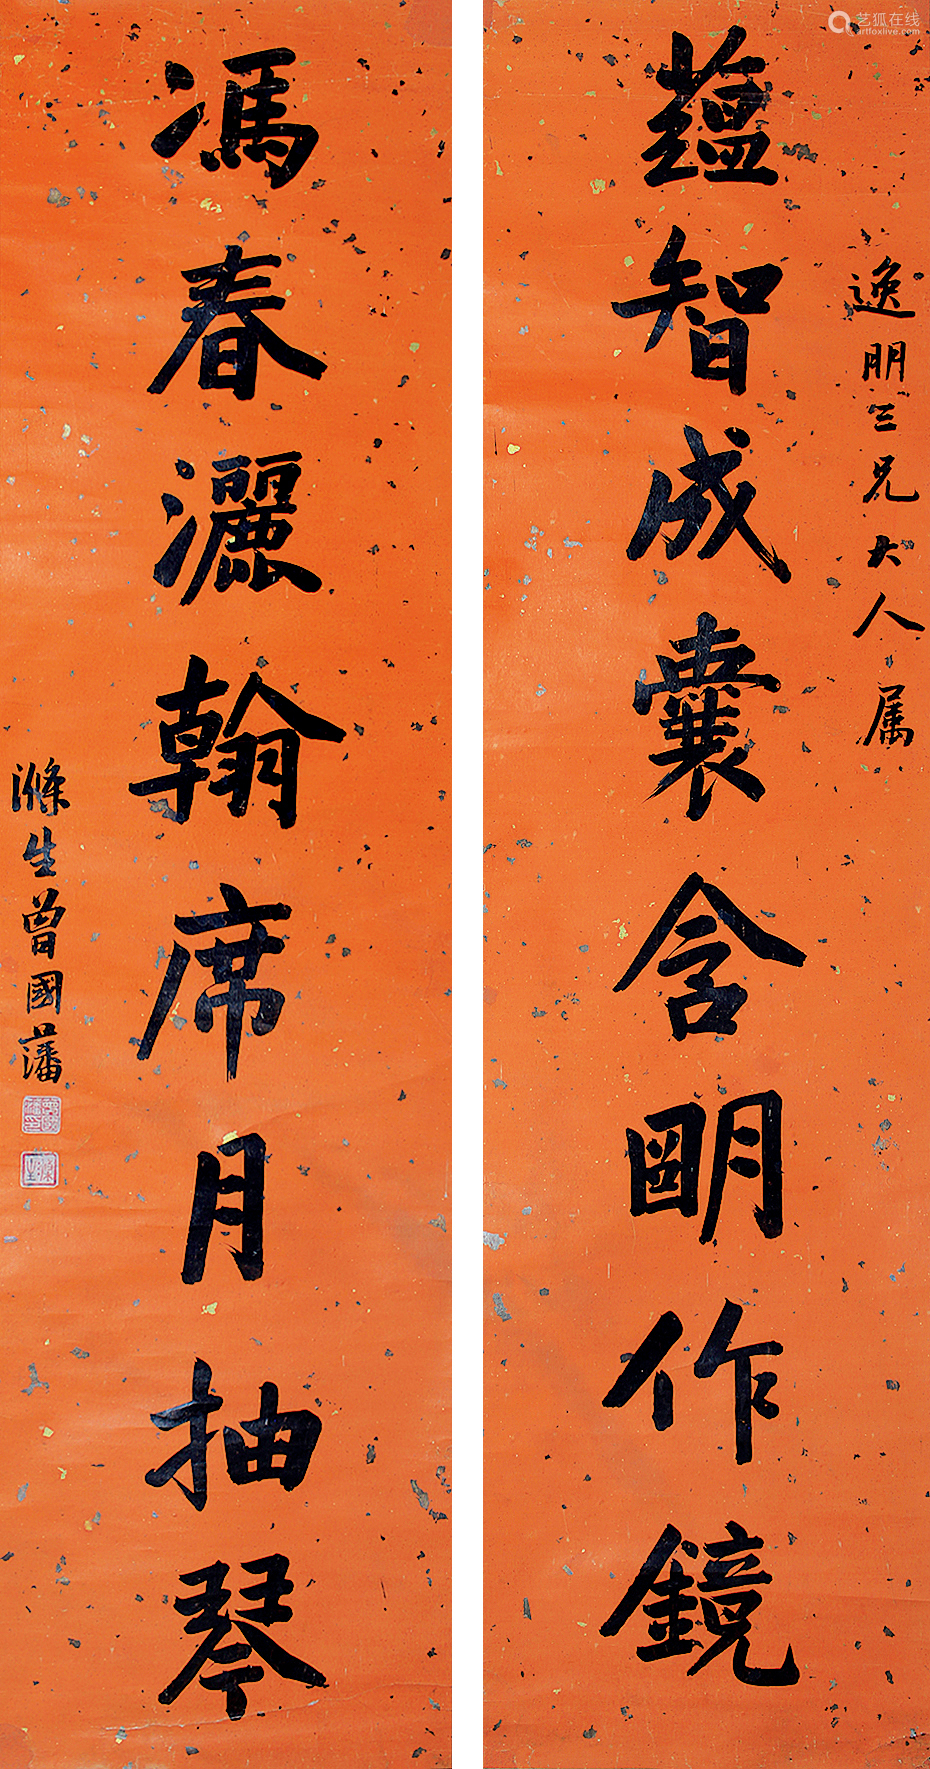 逸朋三兄大人属
蕴智成囊含明作鏡
馮春灑翰席月抽琴
滌生曾國藩
艺狐在线
artfoxlive.com